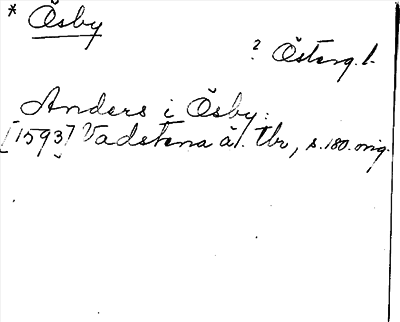 * Ösby
? Österg. l.
Anders i Ösby.
[1593] Vadstena ä. tbr, s. 180. orig.